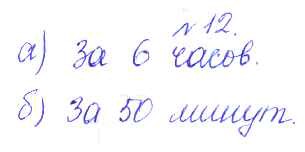 № 12.
а) За 6 часов.
б) За 50 минут.